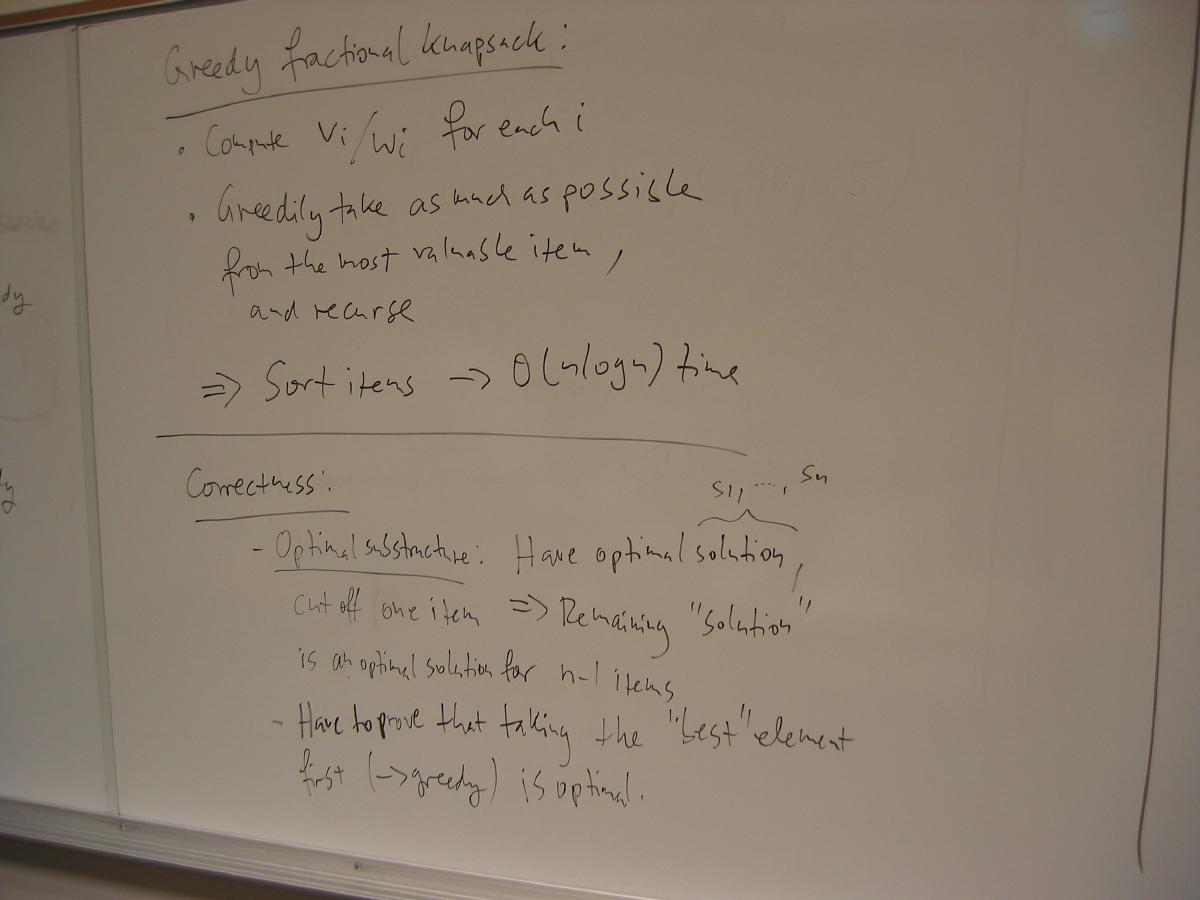 Greedy fractional knapsack:
• Compute Vi/Wi for each i
• Greedily take as much as possible
from the most valuable item,
and recurse
=> Sort items -> O(nlogn) time
Correctness:
s1, ..., sn
- Optimal substructure: Have optimal solution,
cut off one item => Remaining "solution"
is an optimal solution for n-1 items
- Have to prove that taking the "best" element
first (->greedy) is optimal.
dy